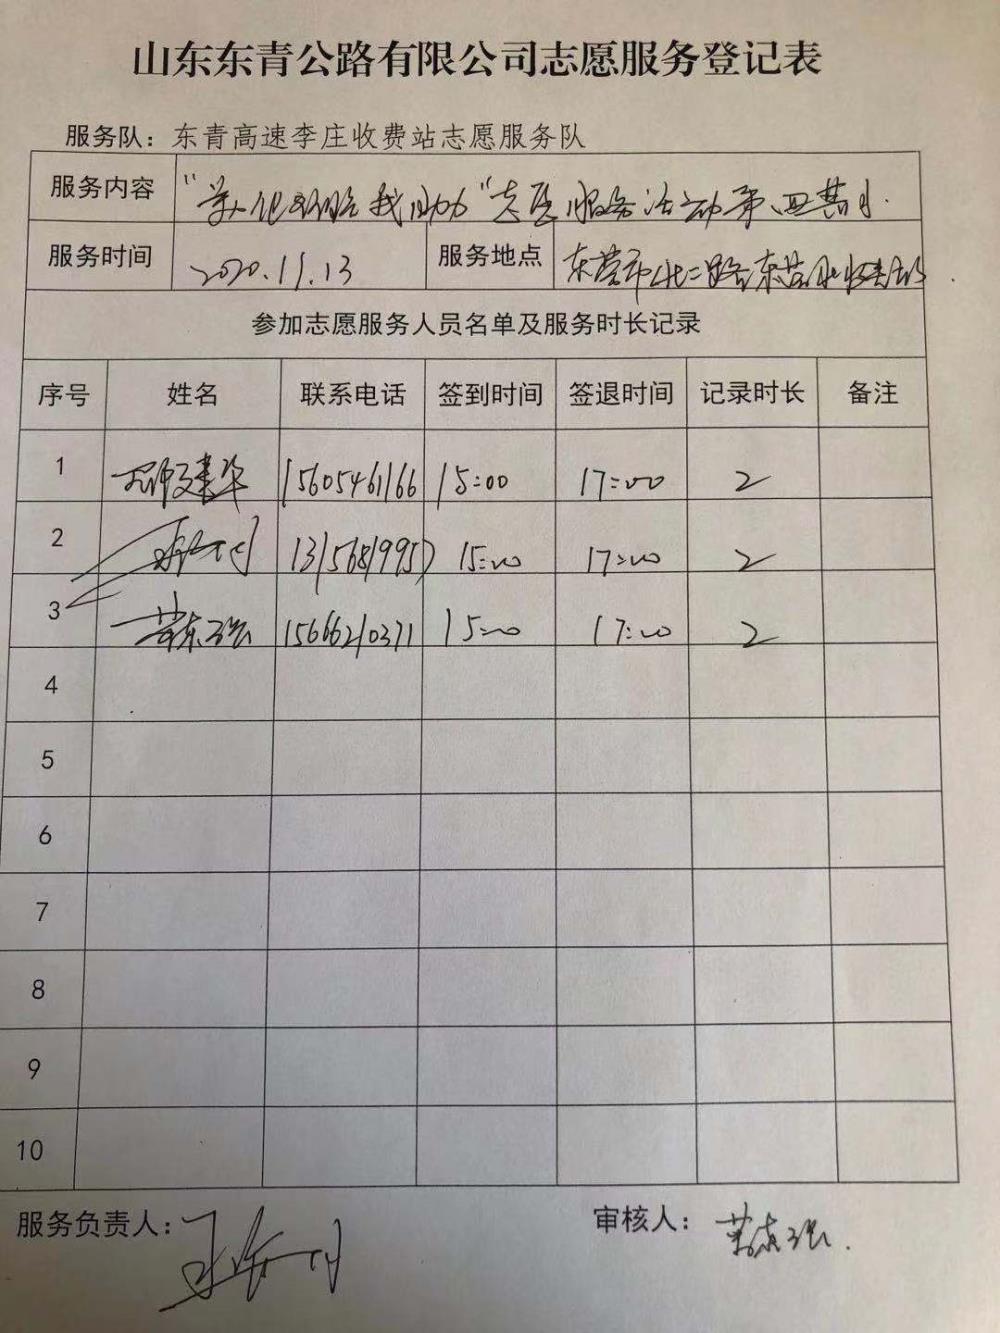 山东东青公路有限公司志愿服务登记表
服务队：东青高速李庄收费站志愿服务队
服务内容 “美化路域我助力”志愿服务活动第四营日.
服务时间 2020.11.13 服务地点 东营市北二路东营北收费站.
参加志愿服务人员名单及服务时长记录
序号 姓名 联系电话 签到时间 签退时间 记录时长 备注
1 建华 15605461166 15:00 17:00 2
2 13156819957 15:00 17:00 2
3 苗东强 15666210371 15:00 17:00 2
4
5
6
7
8
9
10
服务负责人： 审核人： 苗东强.